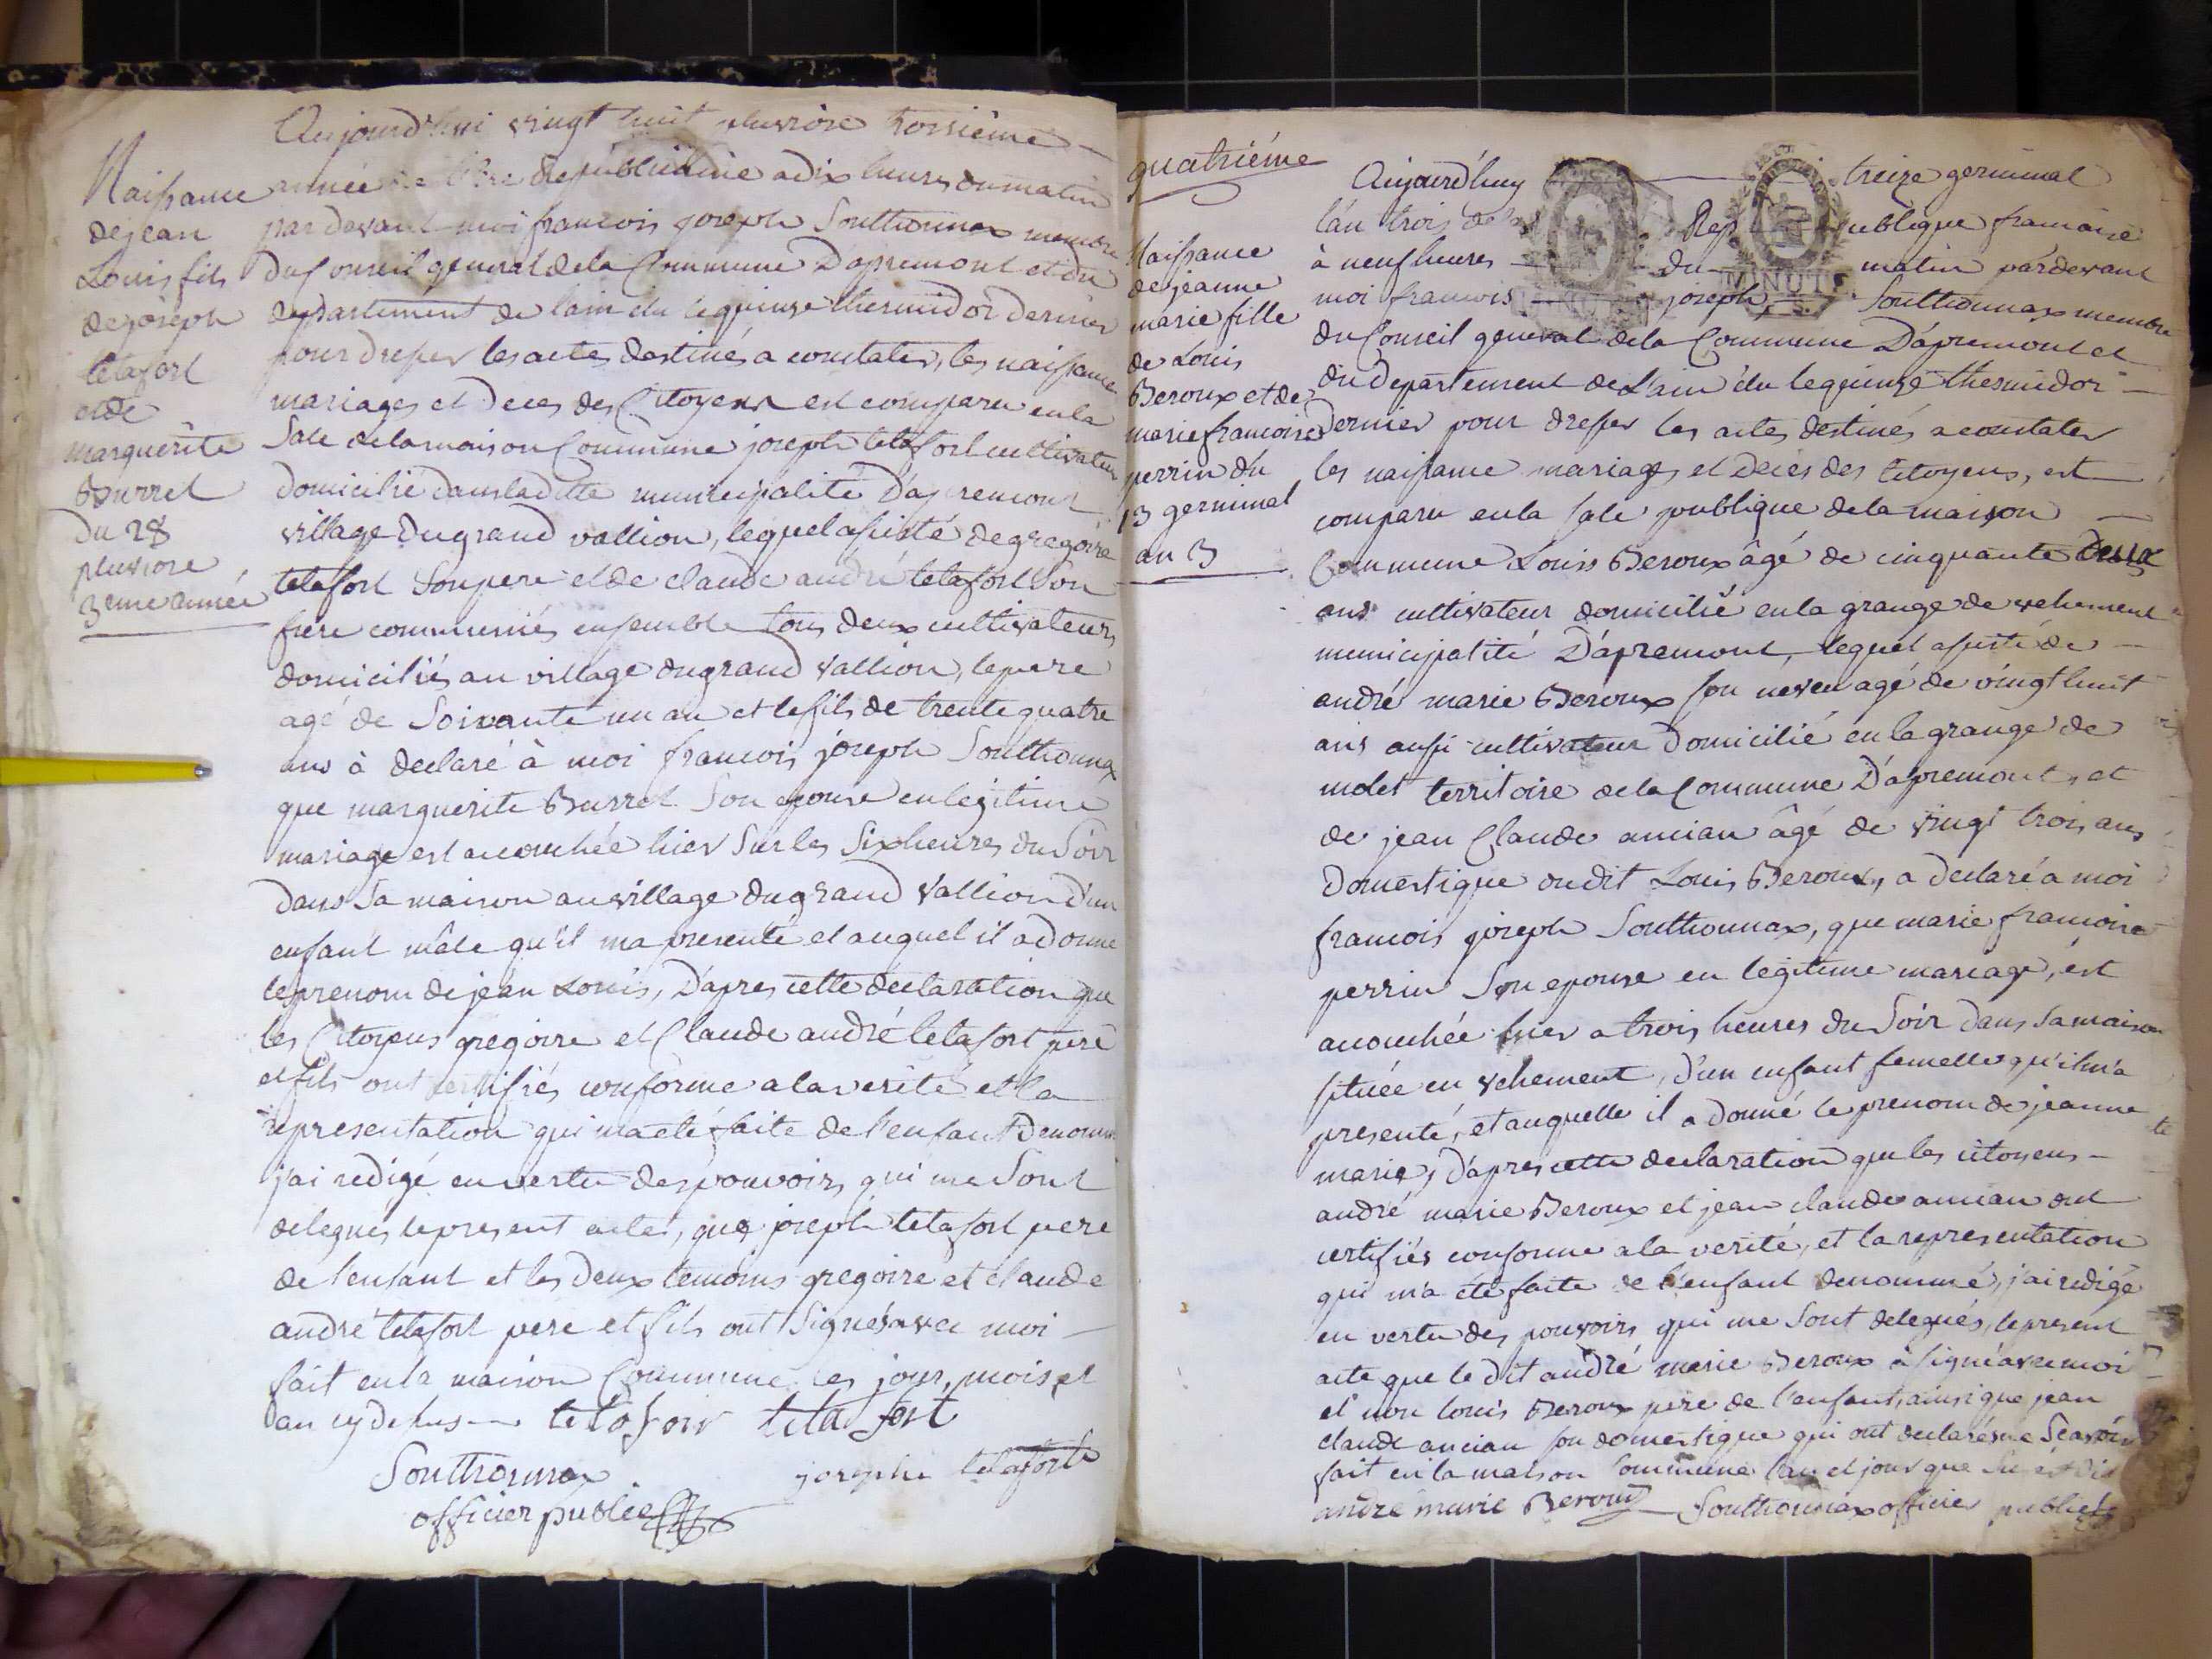 Aujourd'hui vingt huit pluviôse troisième
Naissance
dejean
Louis fils
dejoseph
tetafort
et de
marguerite
Burret
Du 28
pluviose
3eme année
année republicaine a dix heures dumatin
pardevant moi francois joseph Southonnax membre
du Conseil general dela Commune D'apremont et du
departement de lain élu lequinze thermidor dernier
pour dresser les actes destinés a constater, les naissance
mariages et Deces des Citoyens est comparu enla
Sale delamaison Commune joseph tetafort cultivateur
domicilié dansladitte municipalité D'apremont
village Dugrand vallion, lequel assisté degregoire
tetafort Sonpere et de claude andré tetafort Son
frere communiés ensemble tous deux cultivateurs
domiciliés au village dugrand vallion, lepere
agé de Soixante un an et lefils de trente quatre
ans à declaré à moi francois joseph Southonnax
que marguerite Burret Son epouse enlegitime
mariage est acouchée hier Sur les Sixheures du Soir
dans Sa maison auvillage dugrand Vallion d'un
enfant mâle qu'il ma presenté et auquel il adonné
leprenom dejean Louis, D'apres cette declaration que
les Citoyens gregoire et Claude andré tetafort pere
et fils ont certifiés conforme a la verité et la
representation qui ma eté faite de l'enfant Denommé
j'ai redigé en vertu des pouvoirs qui me Sont
delegués lepresent acte, que joseph tetafort pere
de l'enfant et les deux temoins gregoire et claude
andré tetafort pere et fils ont Signés avec moi
fait enla maison Commune les jour, mois et
an cydessus tetafort tetafort
Southonnax joseph tetafort
officier public
quatriéme
Naissance
dejeanne
marie fille
de Louis
Beroux et de
marie francoise
perrin du
13 germinal
an 3
Aujourd'huy treize germinal
l'an trois de la Republique francaise
à neuf heures du matin pardevant
MINUTE
moi francois joseph Southonnax membre
du Conseil general dela Commune D'apremont et
du departement de L'ain élu lequinze thermidor
Dernier pour dresser les actes destinés a constater
les naissance mariages et Deces des Citoyens, est
comparu enla Sale publique dela maison
Commune Louis Beroux âgé de cinquante deux
ans cultivateur domicilié enla grange de vehement
municipalité D'apremont, lequel assisté de
andré marie Beroux son neveu agé de vingt huit
ans aussi cultivateur Domicilié en la grange de
molet territoire dela Commune D'apremont, et
de jean Claude ancian âgé de vingt trois ans
Domestique dudit Louis Beroux, a declaré a moi
francois joseph Southonnax, que marie francoise
perrin Son epouse en legitime mariage, est
acouchée hier a trois heures du Soir dans Samaison
située en vehement, d'un enfant femelle qu'ilm'a
presenté, et auquelle il a donné le prenom de jeanne
marie, d'apres cette declaration que les citoyens
andré marie Beroux et jean claude ancian ont
certifiés conforme ala verité, et la representation
qui m'a eté faite de l'enfant denommé, j'ai redigé
en vertu des pouvoirs qui me Sont delegués, lepresent
acte que le dit andré marie Beroux à signé avec moi
et non louis Beroux pere de l'enfant, ainsi que jean
claude ancian son domestique qui ont declarés ne Scavoir
fait en la maison Commune l'an et jour que
andre marie Beroux Southonnax officier public